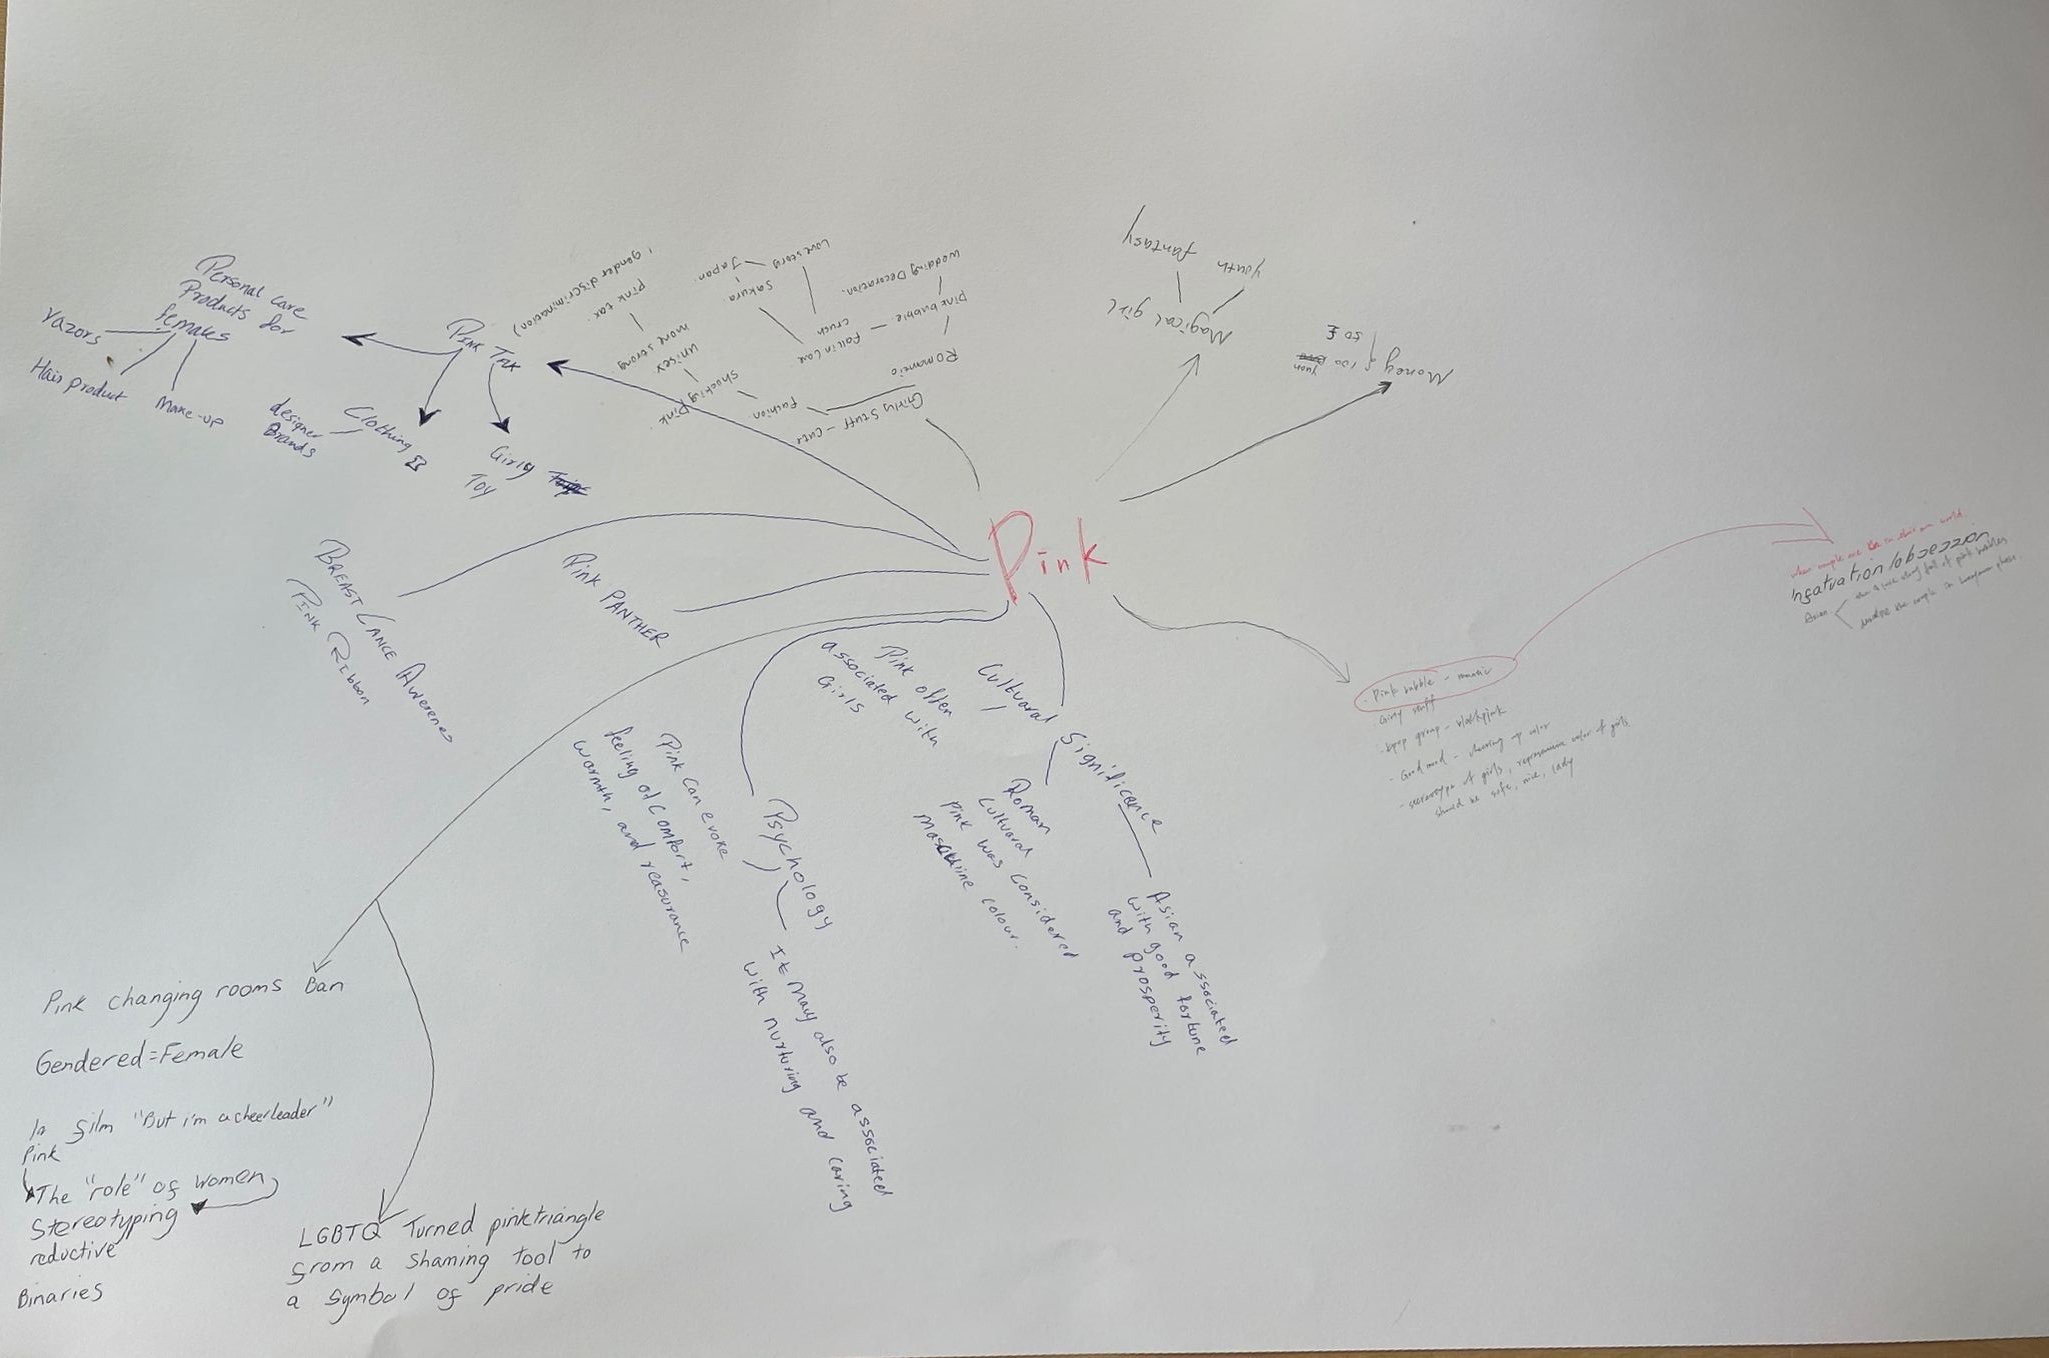 Pink
Personal care
Products for
females
razors
Hair product
Make-up
PINK TAX
Clothing
designer
Brands
Girly
Toy
gender discrimination)
pink tax
unisex
more strong
Shocking pink
Fashion
Girly Stuff - Cute
Romantic
pink bubble
Wedding Decoration.
Fall in love
crush
Love story
Sakura
Japan
Magical girl
youth
fantasy
Money
100
yuan
50 £
BREAST CANCE AWERENES
PINK RIBBON
PINK PANTHER
Pink often
associated with
Girls
Cultuaral Significance
Roman
Cultuaral
Pink was considered
masculine colour.
Asian associated
with good fortune
and prosperity
Psychology
Pink can evoke
feeling of comfort,
warmth, and reasurance
It may also be associated
with nurturing and caring
Pink changing rooms Ban
Gendered=Female
In film "But i'm a cheerleader"
Pink
The "role" of women
Stereotyping
reductive
Binaries
LGBTQ Turned pink triangle
from a shaming tool to
a symbol of pride
Pink bubble -
Girly stuff
- kpop group - blackpink
- Good mood - cheering up color
- stereotype of girls, color of girls
should be nice, lady
when couple are in their own world
Asian
full of pink bubbles
the couple in honeymoon phase